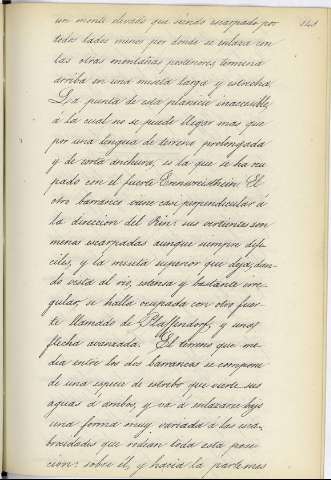 141
un monte elevado que siendo escarpado por
todos lados menos por donde se enlaza con
las otras montañas posteriores termina
arriba en una meseta larga y estrecha.
La punta de esta planicie inaccesible,
á la cual no se puede llegar mas que
por una lengua de terreno prolongada
y de corta anchura, es la que se ha ocu
pado con el fuerte El
otro barranco viene casi perpendicular á
la direccion del Rin: sus vertientes son
menos escarpadas aunque siempre difi
ciles, y la meseta superior que deja, dan
do vista al rio, estensa y bastante irre
gular, se halla ocupada con otro fuer
te llamado de Pfaffendorf, y una
flecha avanzada. El terreno que me
dia entre los dos barrancos se compone
de una especie de estribo que vierte sus
aguas á ambos, y vá á enlazarse bajo
una forma muy variada á las esca
brosidades que rodean toda esta posi
cion: sobre él, y hacia la parte mas